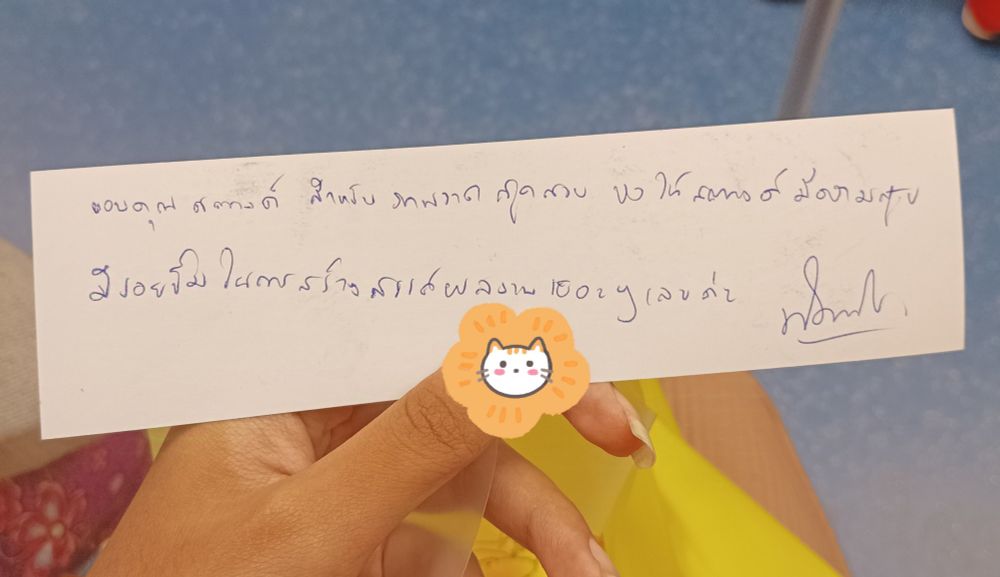 ขอบคุณ สตางค์ สำหรับ ภาพวาด สุดสวย ขอ ให้ สตางค์ มีความสุข
มีรอยยิ้ม ในการสร้างสรรค์ผลงานเยอะๆ เลยค่ะ